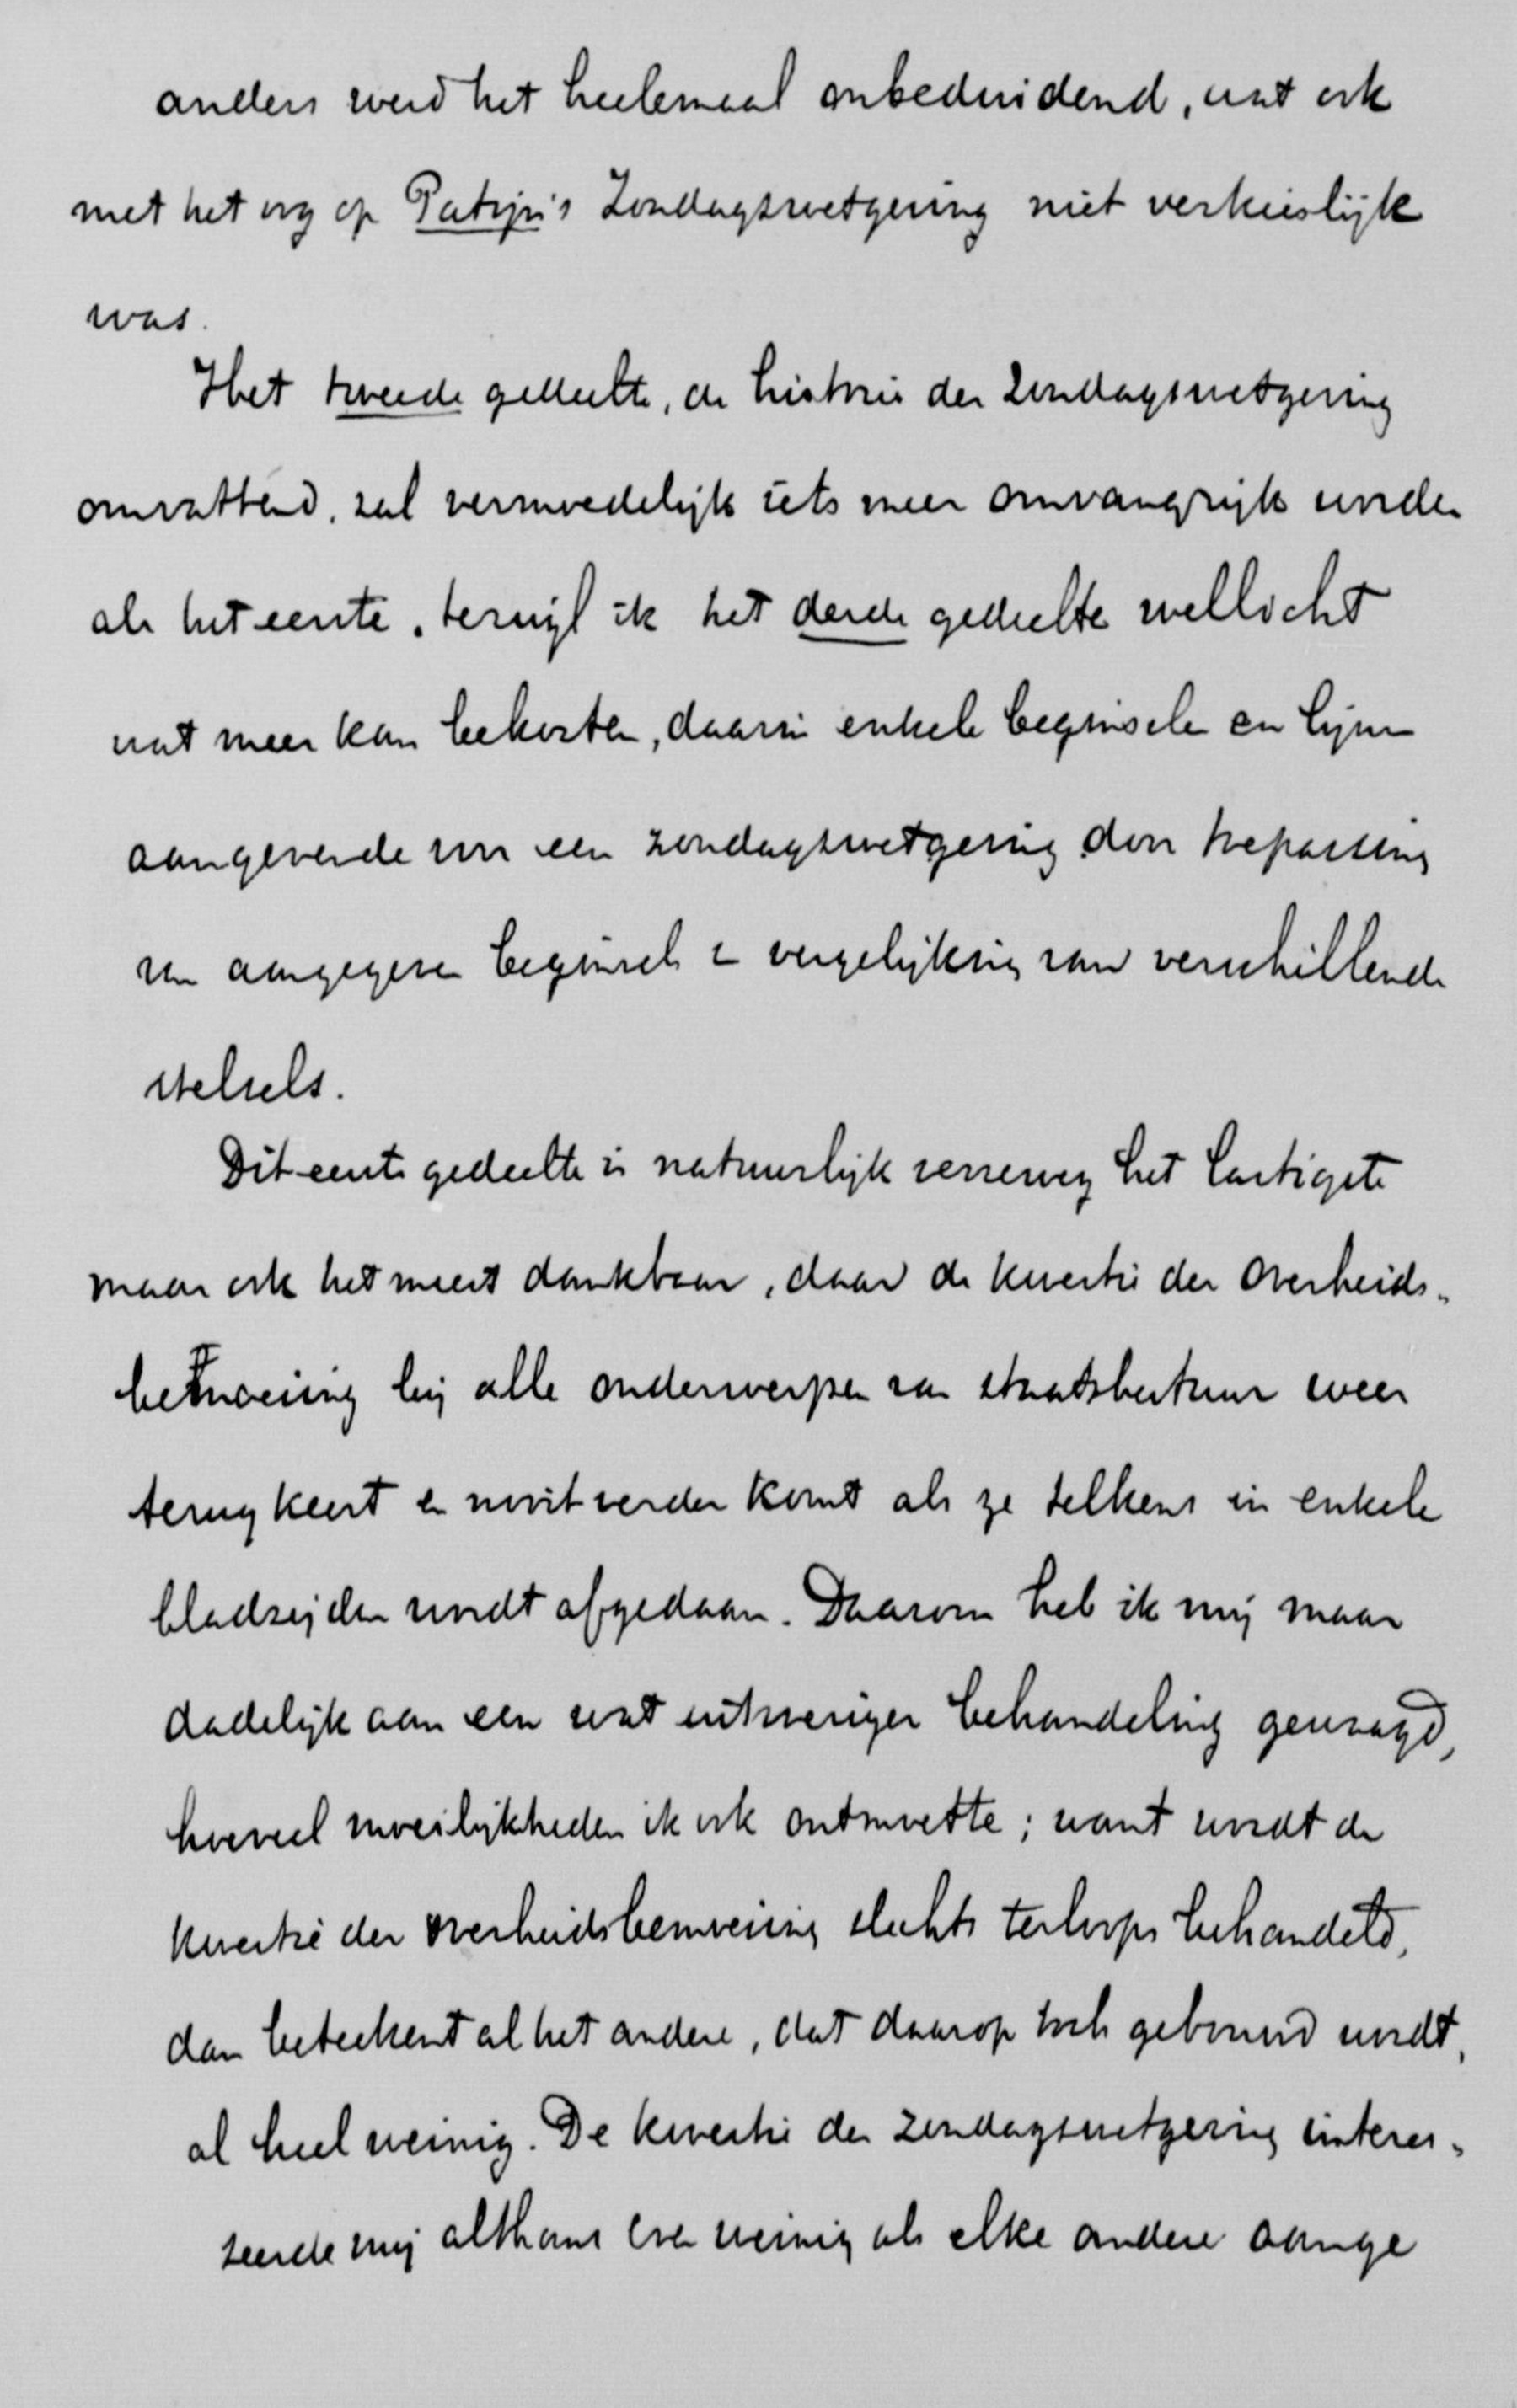 anders werd het heelemaal onbeduidend, wat ook
met het oog op Patijn's Zondagswetgeving niet verkieslijk
was.
Het tweede gedeelte, de historie der Zondagswetgeving
omvattend, zal vermoedelijk iets meer omvangrijk worden
als het eerste, terwijl ik het derde gedeelte wellicht
wat meer kan bekorten, daarin enkele beginselen en lijnen
aangevende voor een zondagswetgeving door toepassing
van aangegeven beginsel en vergelijking van verschillende
stelsels.
Dit eerste gedeelte is natuurlijk verreweg het lastigste
maar ook het meest dankbaar, daar de kwestie der Overheids-
bemoeiing bij alle onderwerpen van staatsbestuur weer
terugkeert en nooit verder komt als ze telkens in enkele
bladzijden wordt afgedaan. Daarom heb ik mij maar
dadelijk aan een wat uitvoeriger behandeling gewaagd,
hoeveel moeilijkheden ik ook ontmoette; want wordt de
kwestie der overheidsbemoeiing slechts terloops behandeld,
dan beteekent al het andere, dat daarop toch gebouwd wordt,
al heel weinig. De kwestie der zondagswetgeving interes-
seerde mij althans even weinig als elke andere aange